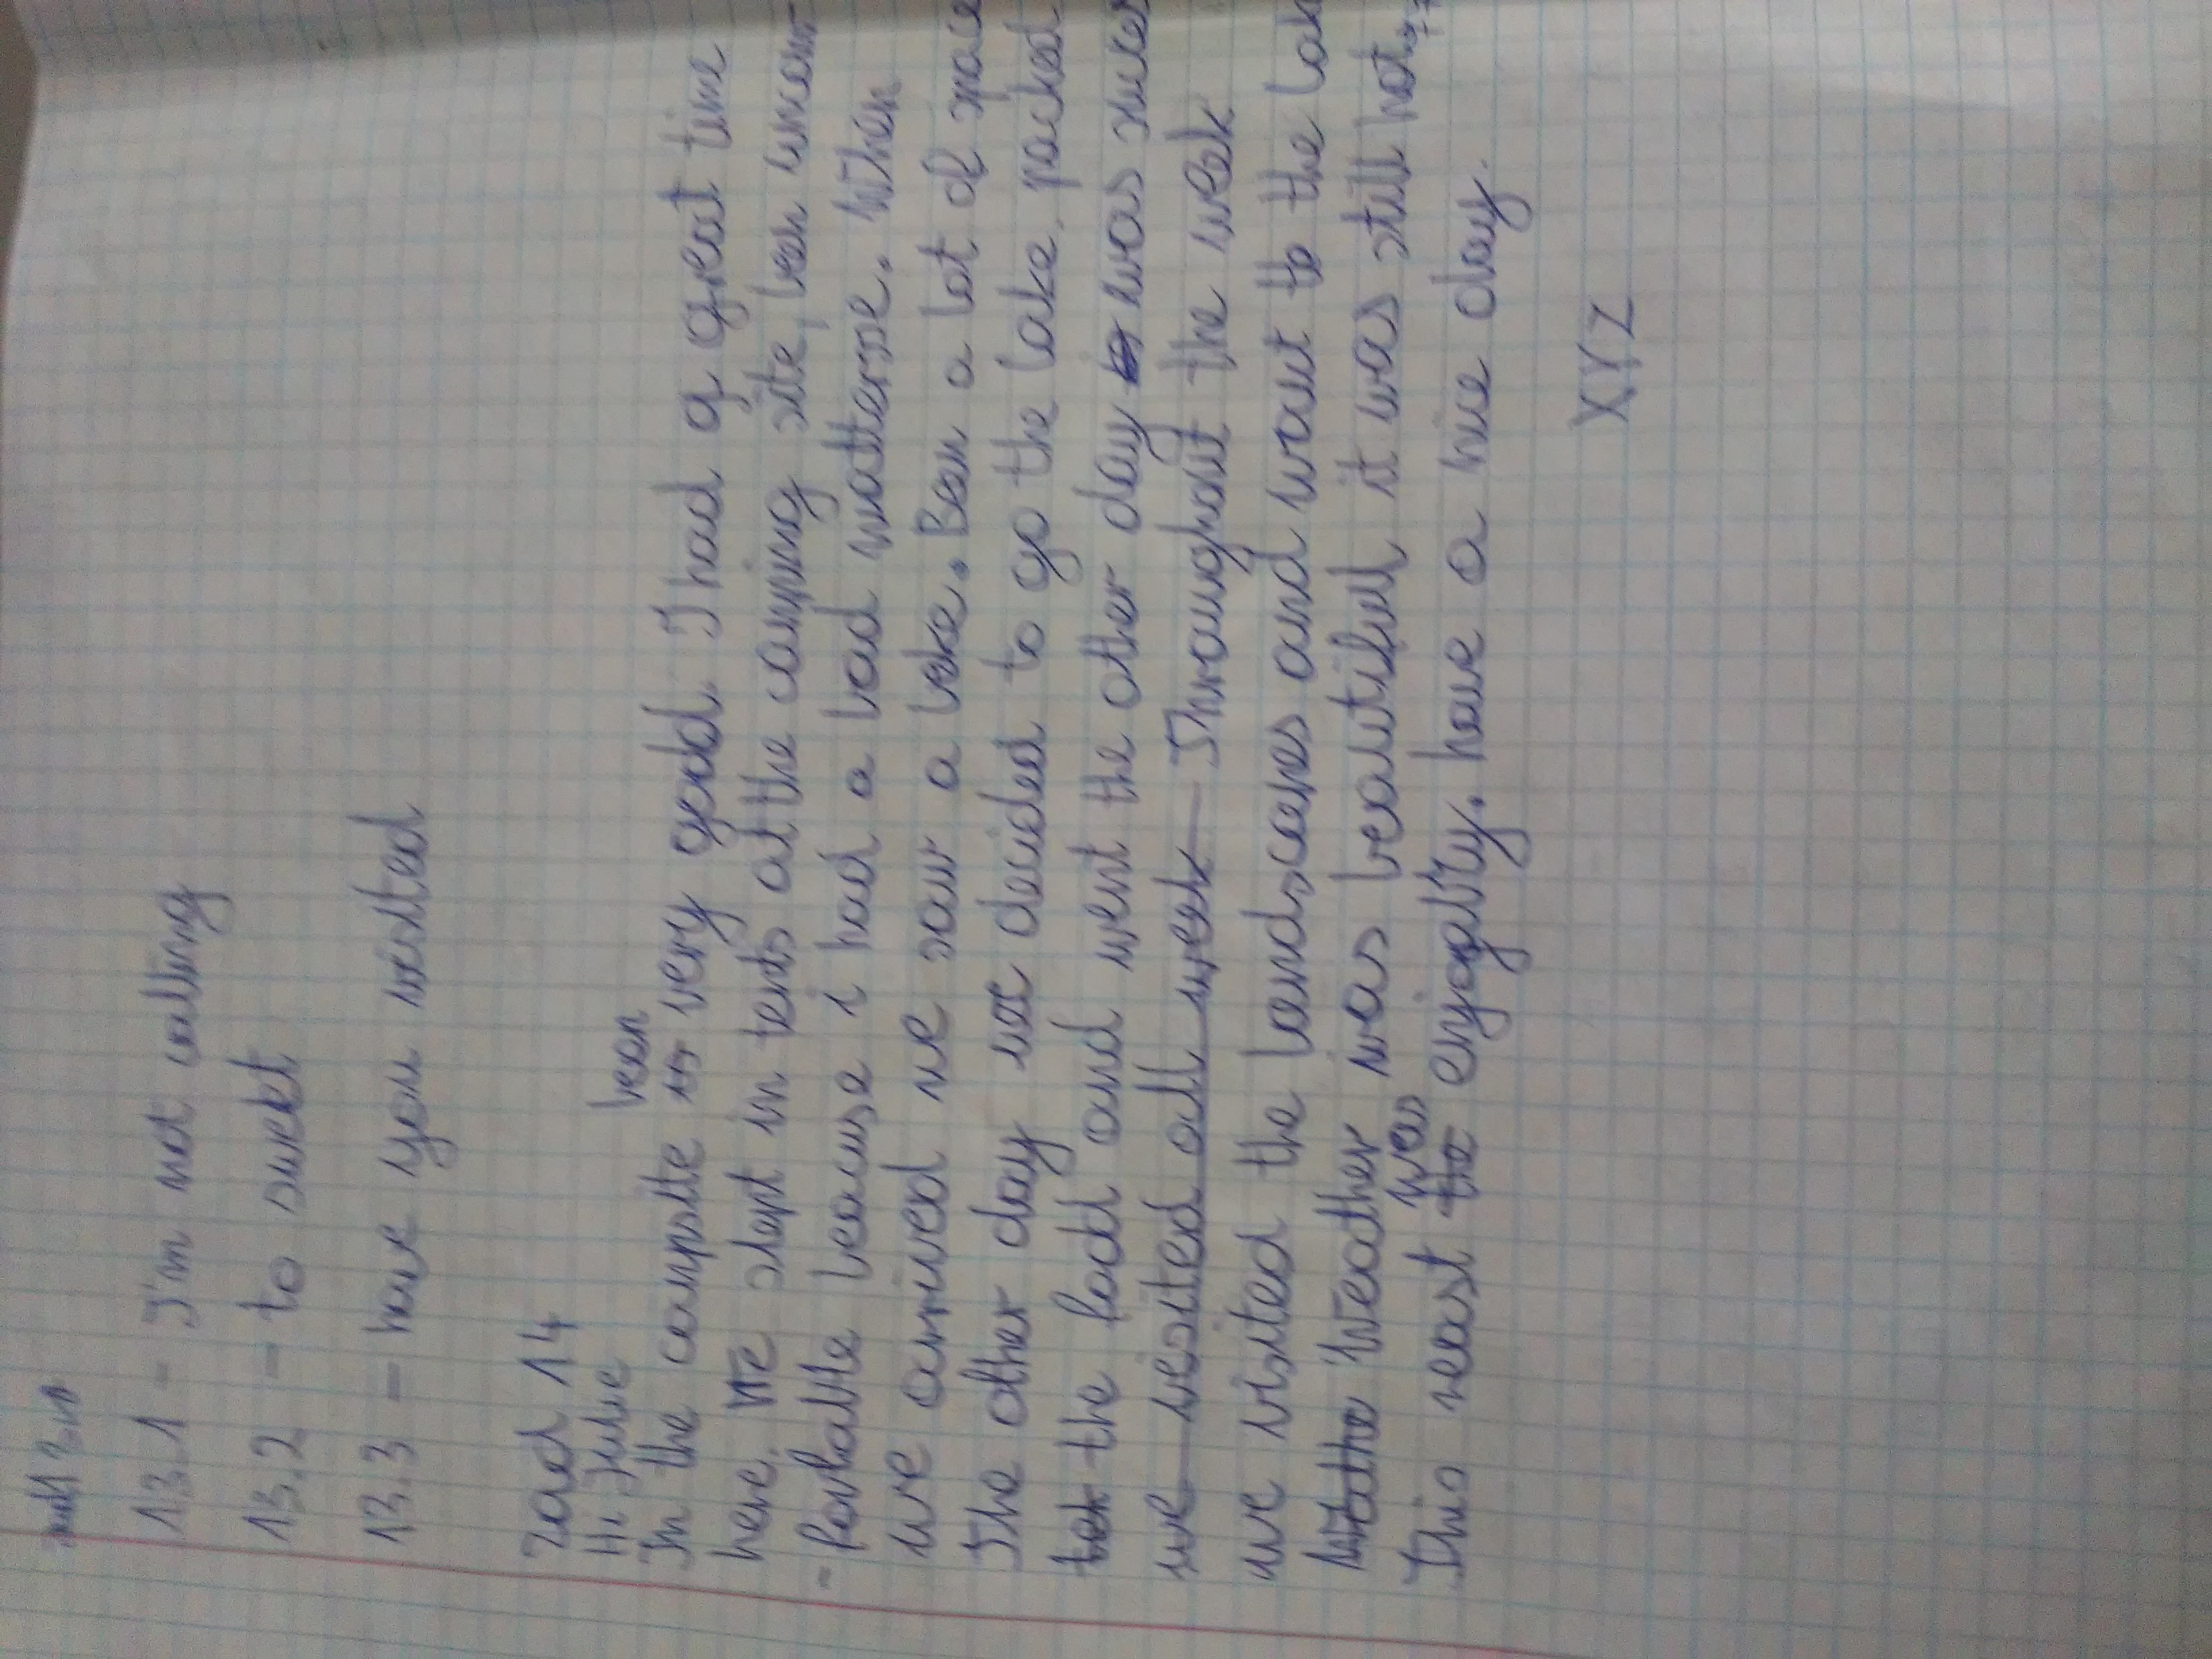 13.1 - I'm not calling
13.2 - to swekt
13.3 - have you visited
Zad 14
Hi Julie
been
In the campsite very good. I had a great time
here. We slept in tents at the camping site, ben uncom-
- forbatle because i had a bad matterse. When
we arrived we saw a lake. Ben a lot of space
The other day we decided to go the lake, packed
the fodd and went the other day was
we visited all week Throughout the week
we visited the landscapes and want to the lak
Weather was beautiful it was still hot
was
This neast the enjoalby. have a nice day.
XYZ